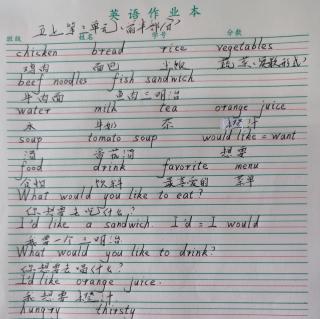 英语作业本
五上第3单元、前半部分?
班级 姓名 学号 分数
chicken bread rice vegetables
鸡肉 面包 米饭 蔬菜、复数形式?
beef noodles fish sandwich
牛肉面 鱼肉三明治
water milk tea orange juice
水 牛奶 茶 橙汁
soup tomato soup would like = want
汤 番茄汤 想要
food drink favorite menu
食物 饮料 最喜爱的 菜单
What would you like to eat?
你想要去吃什么?
I'd like a sandwich. I'd = I would
我要一个三明治
What would you like to drink?
你想要去喝什么?
I'd like orange juice.
我想要橙汁.
hungry thirsty